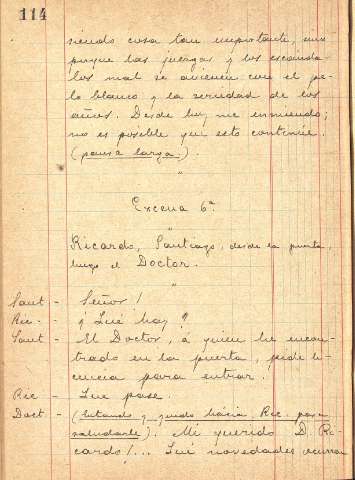 114
siendo cosa tan importante, mas
porque las juergas y los escánda-
los mal se avienen con el pe-
lo blanco y la seriedad de los
años. Desde hoy me enmiendo;
no es posible que esto continúe.
(pausa larga).
"
Excena 6ª
Ricardo, Santiago, desde la puerta,
luego el Doctor.
"
Sant - Señor!
Ric - ¿Qué hay?
Sant - El Doctor, á quien he encon-
trado en la puerta, pide li-
cencia para entrar.
Ric - Que pase.
Doct - (entrando y yendo hácia Ric. para
saludarle). Mi querido D. Ri-
cardo!... Qué novedades ocurren